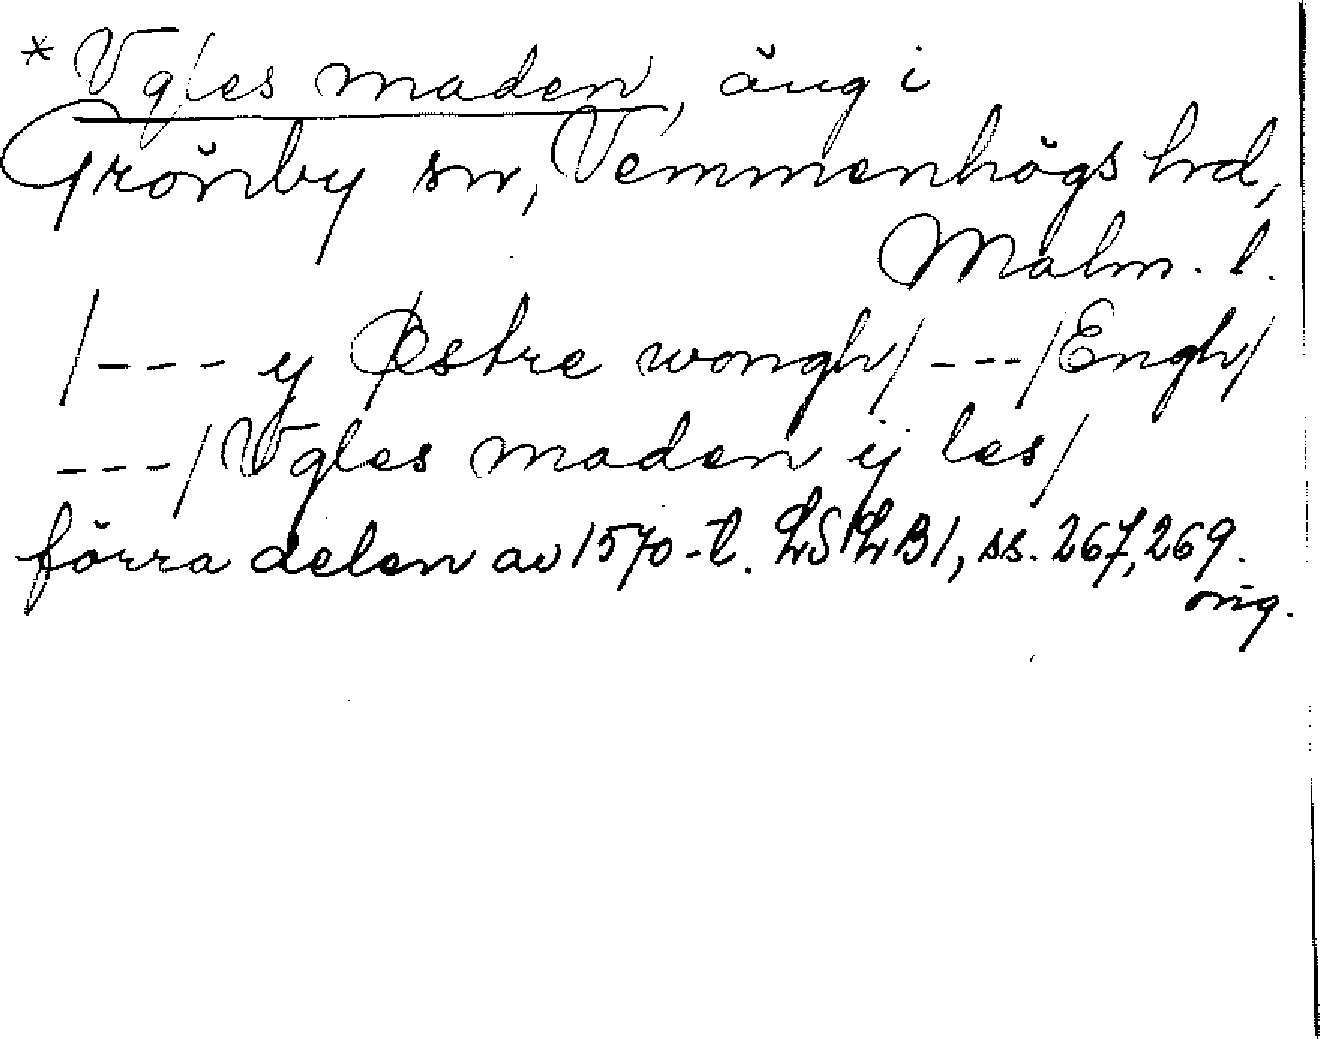 * Vgles maden, äng i
Grönby sn, Vemmenhögs hrd,
Malm. l.
/--- y Østre wongh/---/Engh/
---/Vgles maden ij les/
förra delen av 1570-t. LSLB1, ss. 267, 269.
orig.